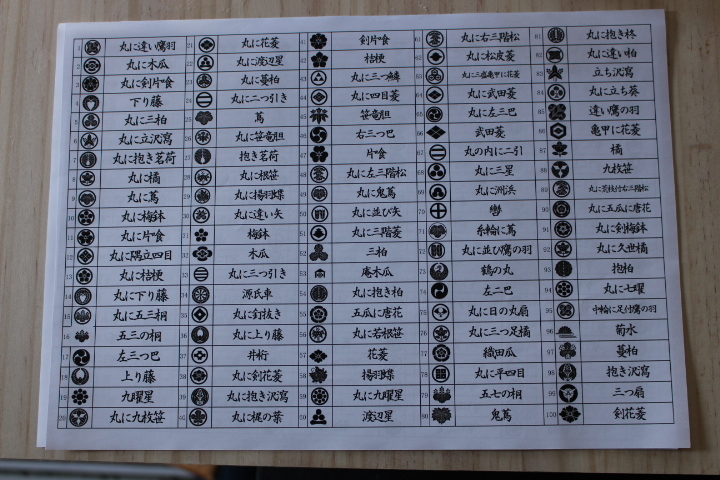 1 丸に違い鷹羽
2 丸に木瓜
3 丸に剣片喰
4 下り藤
5 丸に三柏
6 丸に立沢瀉
7 丸に抱き茗荷
8 丸に橘
9 丸に蔦
10 丸に梅鉢
11 丸に片喰
12 丸に隅立四目
13 丸に桔梗
14 丸に下り藤
15 丸に五三桐
16 五三の桐
17 左三つ巴
18 上り藤
19 九曜星
20 丸に九枚笹
21 丸に花菱
22 丸に渡辺星
23 丸に蔓柏
24 丸に二つ引き
25 蔦
26 丸に笹竜胆
27 抱き茗荷
28 丸に根笹
29 丸に揚羽蝶
30 丸に違い矢
31 梅鉢
32 木瓜
33 丸に三つ引き
34 源氏車
35 丸に釘抜き
36 丸に上り藤
37 井桁
38 丸に剣花菱
39 丸に抱き沢瀉
40 丸に梶の葉
41 剣片喰
42 桔梗
43 丸に三つ鱗
44 丸に四目菱
45 笹竜胆
46 右三つ巴
47 片喰
48 丸に左三階松
49 丸に鬼蔦
50 丸に並び矢
51 丸に三階菱
52 三柏
53 庵木瓜
54 丸に抱き柏
55 五瓜に唐花
56 丸に若根笹
57 花菱
58 揚羽蝶
59 丸に九曜星
60 渡辺星
61 丸に右三階松
62 丸に松皮菱
63 丸に三盛亀甲に花菱
64 丸に武田菱
65 丸に左三巴
66 武田菱
67 丸の内に二引
68 丸に三星
69 丸に洲浜
70 轡
71 糸輪に蔦
72 丸に並び鷹の羽
73 鶴の丸
74 左二巴
75 丸に日の丸扇
76 丸に三つ足橘
77 織田瓜
78 丸に平四目
79 五七の桐
80 鬼蔦
81 丸に抱き柊
82 丸に違い柏
83 立ち沢瀉
84 丸に立ち葵
85 違い鷹の羽
86 亀甲に花菱
87 橘
88 九枚笹
89 丸に荒枝付右三階松
90 丸に五瓜に唐花
91 丸に剣梅鉢
92 丸に久世橘
93 抱柏
94 丸に七曜
95 中輪に足付鷹の羽
96 菊水
97 蔓柏
98 抱き沢瀉
99 三つ扇
100 剣花菱